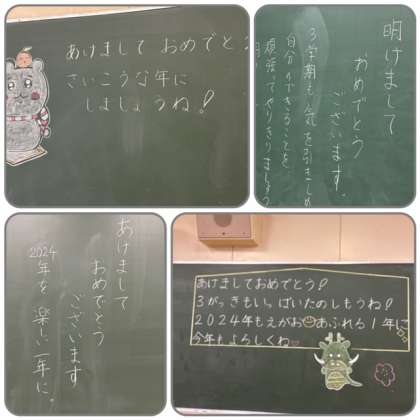 あけまして おめでとう
さいこうな年に
しましょうね!
明けまして
おめでとう
ございます。
3学期も気を引きしめ
自分のできることを
頑張ってやりきりましょう
あけまして
おめでとう
ございます
2024
年を
楽しい一年に。
あけましておめでとう!
3がっきもいっぱいたのしもうね!
2024年もえがお あふれる1年に
今年もよろしくね